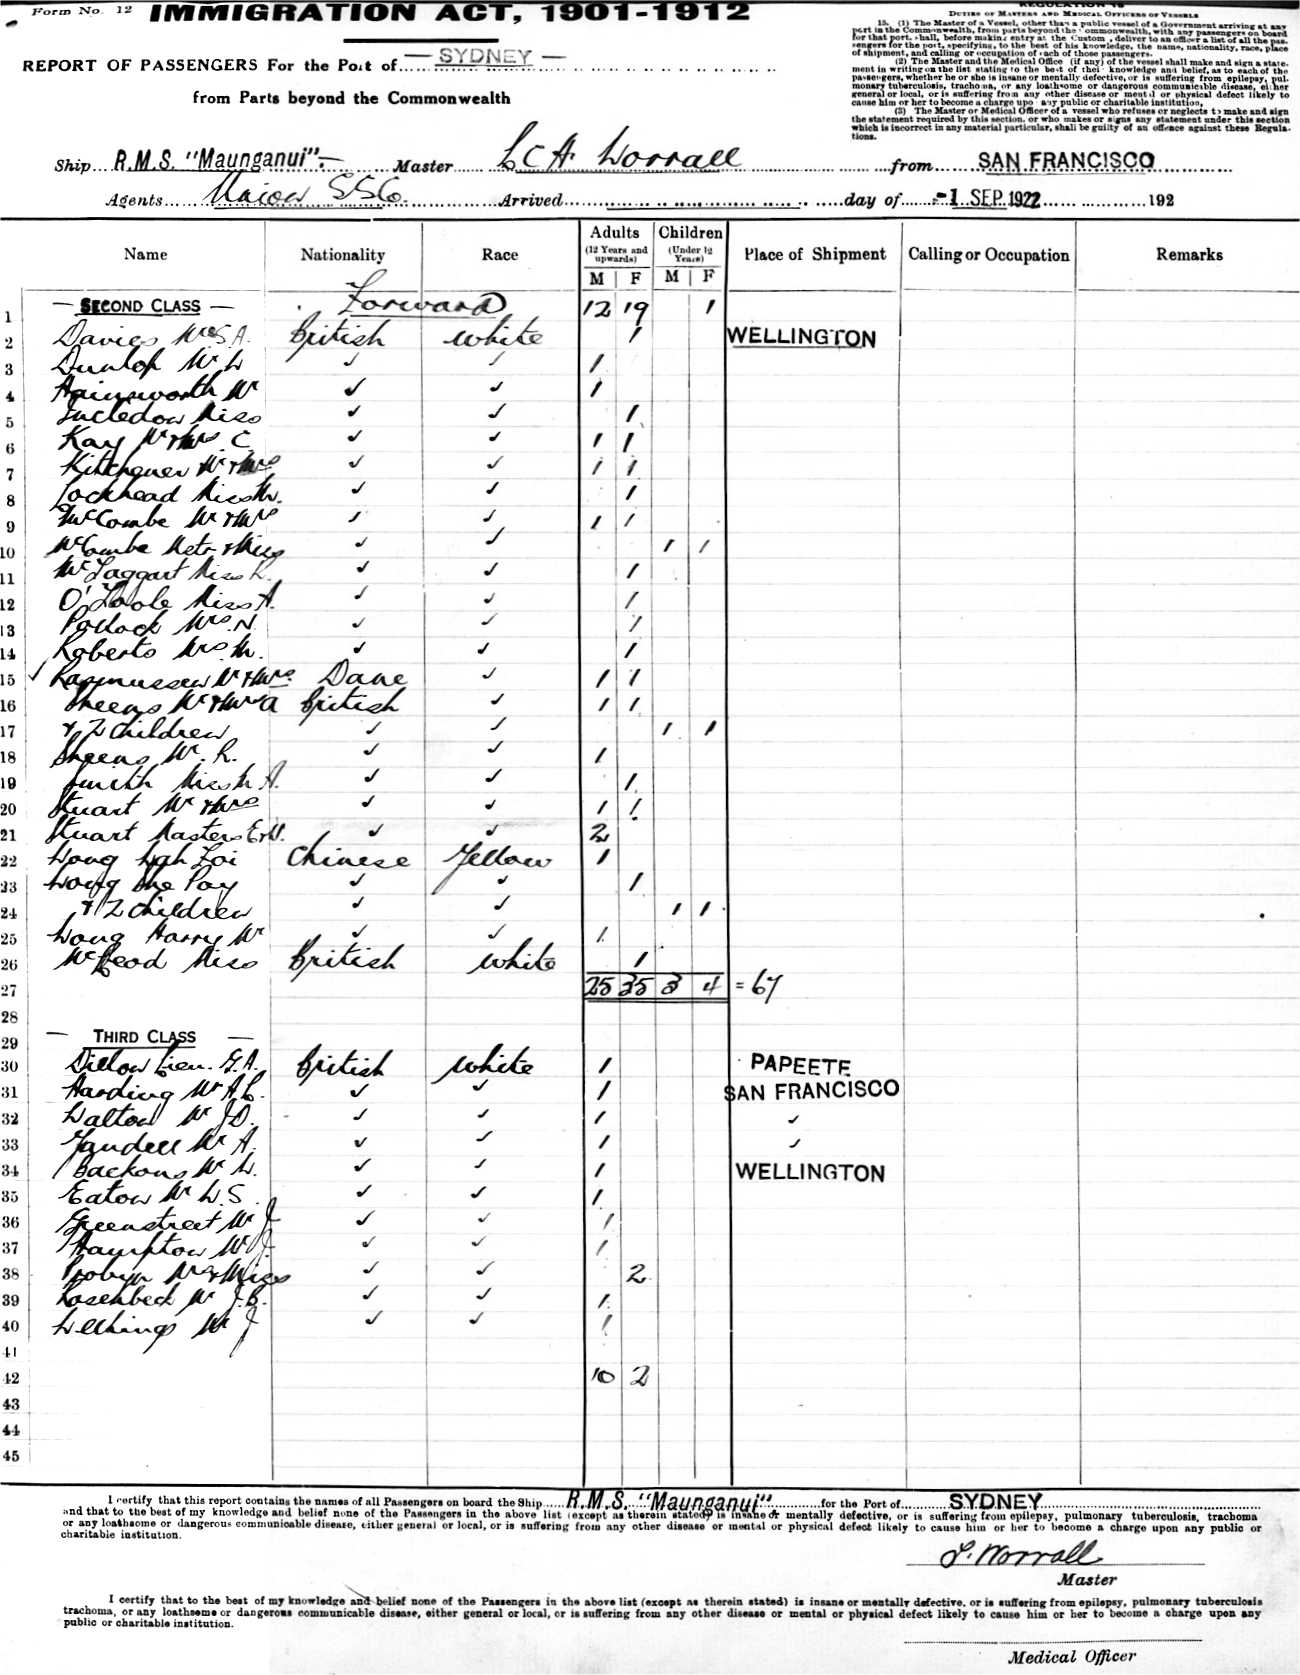 Form No. 12
IMMIGRATION ACT, 1901-1912
REPORT OF PASSENGERS For the Port of — SYDNEY —
from Parts beyond the Commonwealth
REGULATION 15
DUTIES OF MASTERS AND MEDICAL OFFICERS OF VESSELS
15. (1) The Master of a Vessel, other than a public vessel of a Government arriving at any
port in the Commonwealth, from parts beyond the Commonwealth, with any passengers on board
for that port, shall, before making entry at the Custom, deliver to an officer a list of all the pas-
sengers for the port, specifying, to the best of his knowledge, the name, nationality, race, place
of shipment, and calling or occupation of each of those passengers.
(2) The Master and the Medical Office (if any) of the vessel shall make and sign a state-
ment in writing on the list stating to the best of their knowledge and belief, as to each of the
passengers, whether he or she is insane or mentally defective, or is suffering from epilepsy, pul-
monary tuberculosis, trachoma, or any loathsome or dangerous communicable disease, either
general or local, or is suffering from any other disease or mental or physical defect likely to
cause him or her to become a charge upon any public or charitable institution,
(3) The Master or Medical Officer of a vessel who refuses or neglects to make and sign
the statement required by this section, or who makes or signs any statement under this section
which is incorrect in any material particular, shall be guilty of an offence against these Regula-
tions.
Ship R.M.S. "Maunganui". Master L C H Worrall from SAN FRANCISCO
Agents Union S S Co. Arrived day of -1 SEP. 1922 192
Name Nationality Race Adults (12 Years and upwards) M F Children (Under 12 Years) M F Place of Shipment Calling or Occupation Remarks
1 — SECOND CLASS — Forward 12 19 1
2 Davies Mrs S.A. British White 1 WELLINGTON
3 Dunlop Mr W ✓ ✓ 1
4 Hainsworth Mr ✓ ✓ 1
5 Incledon Miss ✓ ✓ 1
6 Kay Mr & Mrs C ✓ ✓ 1 1
7 Kitchener Mr & Mrs ✓ ✓ 1 1
8 Lockhead Miss M. ✓ ✓ 1
9 McCombe Mr & Mrs ✓ ✓ 1 1
10 McCombe Mstr & Miss ✓ ✓ 1 1
11 McTaggart Miss R. ✓ ✓ 1
12 O'Toole Miss A. ✓ ✓ 1
13 Pollock Mrs N. ✓ ✓ 1
14 Roberts Mrs M. ✓ ✓ 1
15 ✓ Rasmussen Mr & Mrs Dane ✓ 1 1
16 Sheens Mr & Mrs A British ✓ 1 1
17 & 2 Children ✓ ✓ 1 1
18 Sheens Mr. R. ✓ ✓ 1
19 Smith Miss M A. ✓ ✓ 1
20 Stuart Mr & Mrs ✓ ✓ 1 1
21 Stuart Masters E & W. ✓ ✓ 2
22 Wong Wah Loi Chinese Yellow 1
23 Wong She Poy ✓ ✓ 1
24 & 2 Children ✓ ✓ 1 1
25 Wong Harry Mr ✓ ✓ 1
26 McLeod Miss British White 1
27 25 35 3 4 = 67
28
29 — THIRD CLASS —
30 Dillow G.A. British White 1 PAPEETE
31 Harding Mr A.E. ✓ ✓ 1 SAN FRANCISCO
32 Walton Mr J.D. ✓ ✓ 1 ✓
33 Yandell Mr A. ✓ ✓ 1 ✓
34 Backons Mr W. ✓ ✓ 1 WELLINGTON
35 Eaton Mr W.S. ✓ ✓ 1
36 Greenstreet Mr J ✓ ✓ 1
37 Hampton Mr J. ✓ ✓ 1
38 Probyn Mrs & Miss ✓ ✓ 2
39 Rosenbeck Mr J.B. ✓ ✓ 1
40 Welkings Mr J ✓ ✓ 1
41
42 10 2
43
44
45
I certify that this report contains the names of all Passengers on board the Ship R.M.S. "Maunganui" for the Port of SYDNEY
and that to the best of my knowledge and belief none of the Passengers in the above list (except as therein stated) is insane or mentally defective, or is suffering from epilepsy, pulmonary tuberculosis, trachoma
or any loathsome or dangerous communicable disease, either general or local, or is suffering from any other disease or mental or physical defect likely to cause him or her to become a charge upon any public or
charitable institution.
L. Worrall
Master
I certify that to the best of my knowledge and belief none of the Passengers in the above list (except as therein stated) is insane or mentally defective, or is suffering from epilepsy, pulmonary tuberculosis
trachoma, or any loathsome or dangerous communicable disease, either general or local, or is suffering from any other disease or mental or physical defect likely to cause him or her to become a charge upon any
public or charitable institution.
Medical Officer